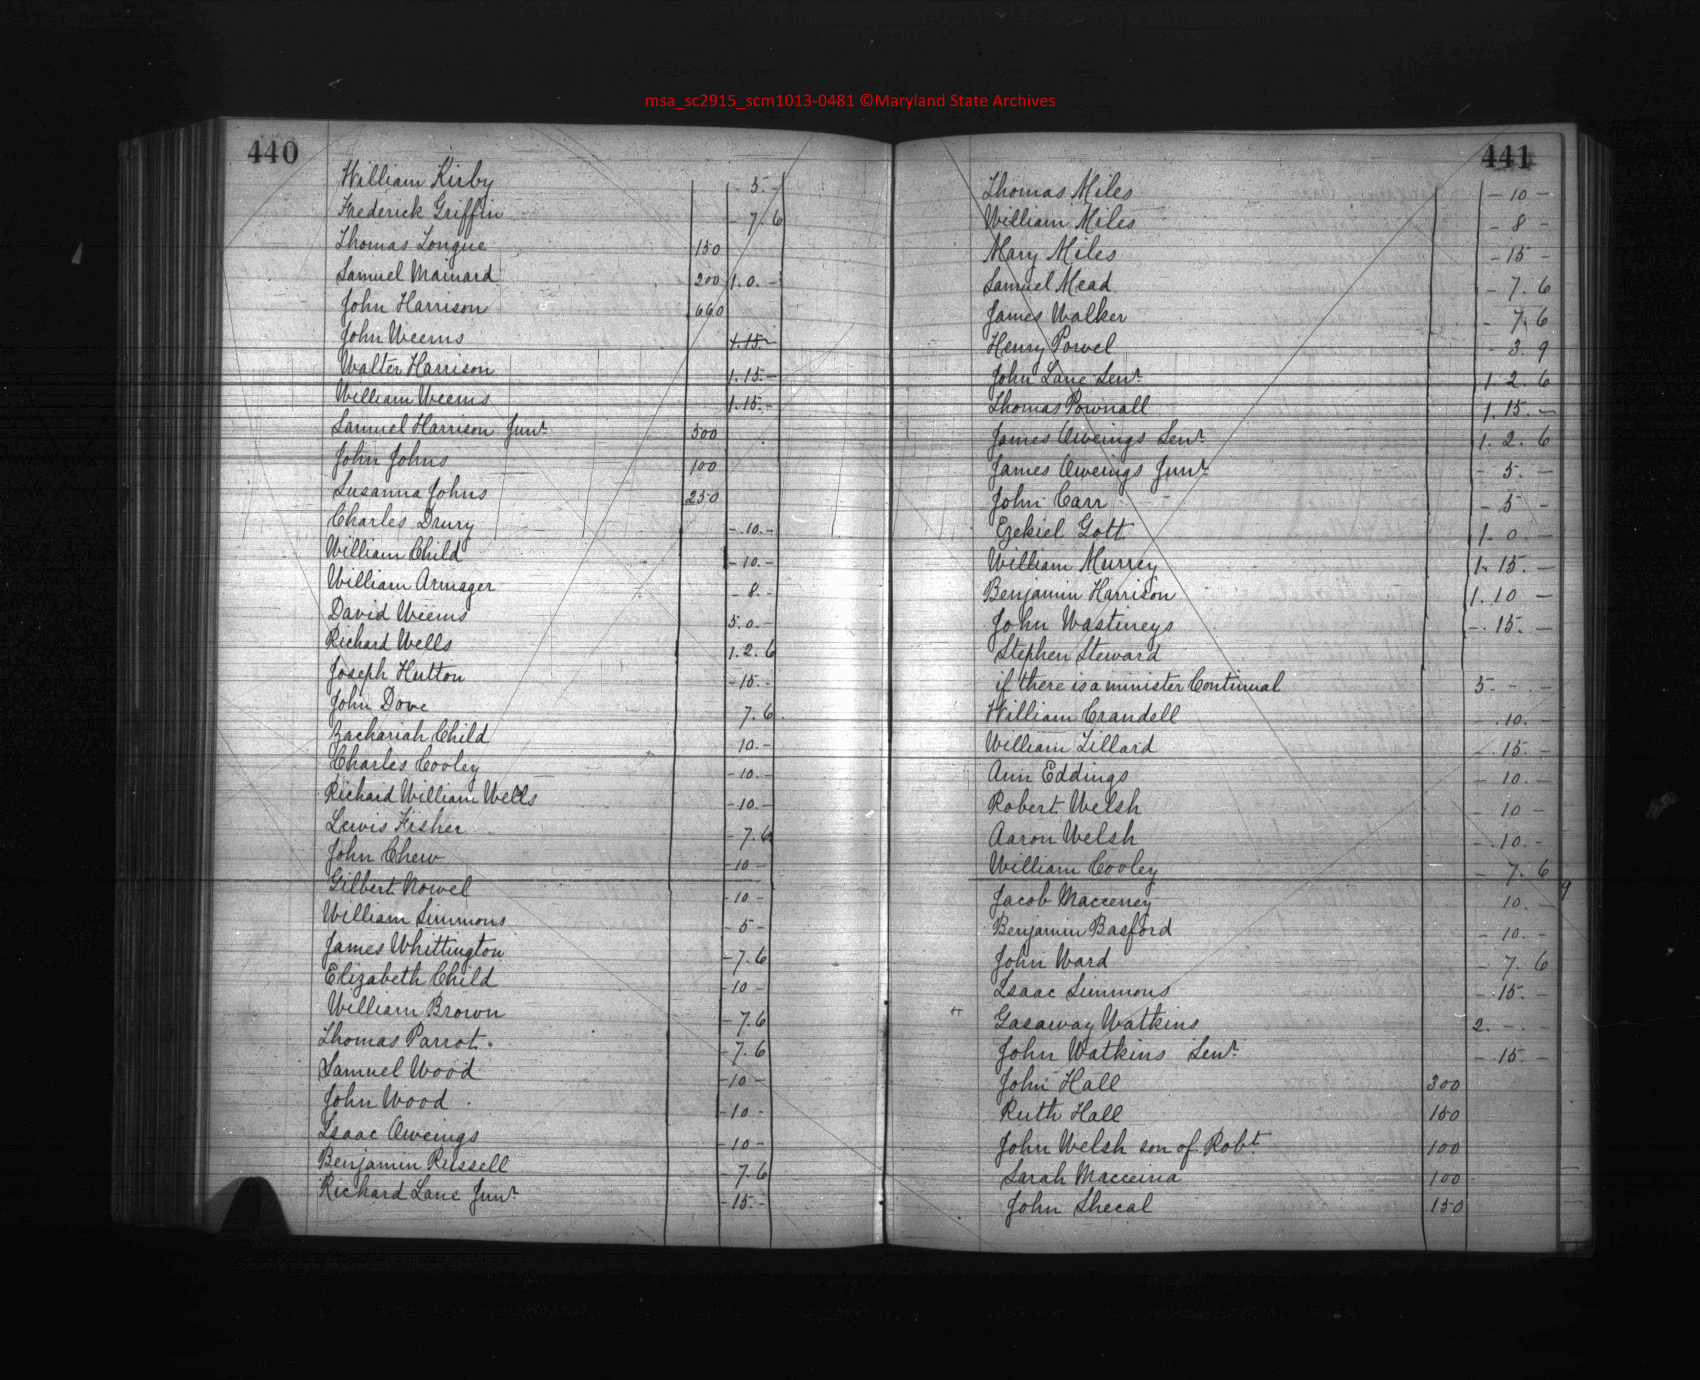 msa_sc2915_scm1013-0481 ©Maryland State Archives
440
William Kirby - 5. -
Frederick Griffin - 7. 6
Thomas Tongue 150
Samuel Mainard 200 1. 0. -
John Harrison 660
John Weems 1. 15. -
Walter Harrison 1. 15. -
William Weems 1. 15. -
Samuel Harrison Junr. 500
John Johns 100
Susanna Johns 250
Charles Drury - 10. -
William Child - 10. -
William Armager - 8. -
David Weems 5. 0. -
Richard Wells 1. 2. 6
Joseph Hutton - 15. -
John Dove 7. 6
Zachariah Child - 10. -
Charles Cooley - 10. -
Richard William Wells - 10. -
Lewis Fisher - 7. 6
John Chew - 10 -
Gilbert Nowel - 10 -
William Simmons - 5 -
James Whittington - 7. 6
Elizabeth Child - 10 -
William Brown - 7. 6
Thomas Parrot - 7. 6
Samuel Wood - 10 -
John Wood - 10 -
Isaac Oweings - 10 -
Benjamin Russell - 7. 6
Richard Lane Junr. - 15. -
441
Thomas Miles - 10 -
William Miles - 8 -
Mary Miles - 15 -
Samuel Mead - 7. 6
James Walker - 7. 6
Henry Powel - 3. 9
John Lane Senr. 1. 2. 6
Thomas Pownall 1. 15. -
James Oweings Senr. 1. 2. 6
James Owerings Junr. - 5. -
John Carr - 5 -
Ezekiel Gott 1. 0. -
William Murrey 1. 15. -
Benjamin Harrison 1. 10 -
John Wastineys - 15. -
Stephen Steward
if there is a minister Continual 5. - . -
William Crandell - 10. -
William Lillard - 15. -
Ann Eddings - 10. -
Robert Welsh - 10 -
Aaron Welsh - 10. -
William Cooley - 7. 6
Jacob Macceney 10. -
Benjamin Basford - 10. -
John Ward - 7. 6
Isaac Simmons - 15. -
Gasaway Watkins 2. - .
John Watkins Senr. - 15. -
John Hall 300
Ruth Hall 150
John Welsh son of Robt. 100
Sarah Macceina 100
John Shecal 150